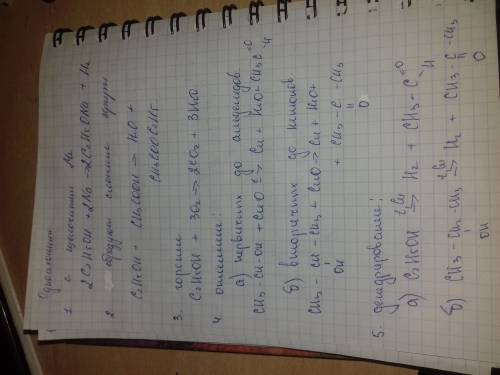 1 Одноатомные
1. с щелочными Ме
2C₂H₅OH + 2Na → 2C₂H₅ONa + H₂
2. образуют сложные эфиры
C₂H₅OH + CH₃COOH → H₂O +
CH₃COOC₂H₅
3. горение
C₂H₅OH + 3O₂ → 2CO₂ + 3H₂O
4. окисление:
а) первичных до альдегидов
CH₃-CH-OH + CuO t→ Cu + H₂O + CH₃C=O
-H
б) вторичных до кетонов
CH₃ - CH - CH₃ + CuO → Cu + H₂O +
OH + CH₃ - C - CH₃
O
5. дегидрирование:
а) C₂H₅OH t,Cu → H₂ + CH₃ - C=O
-H
б) CH₃ - CH - CH₃ t,Cu → H₂ + CH₃ - C - CH₃
OH O